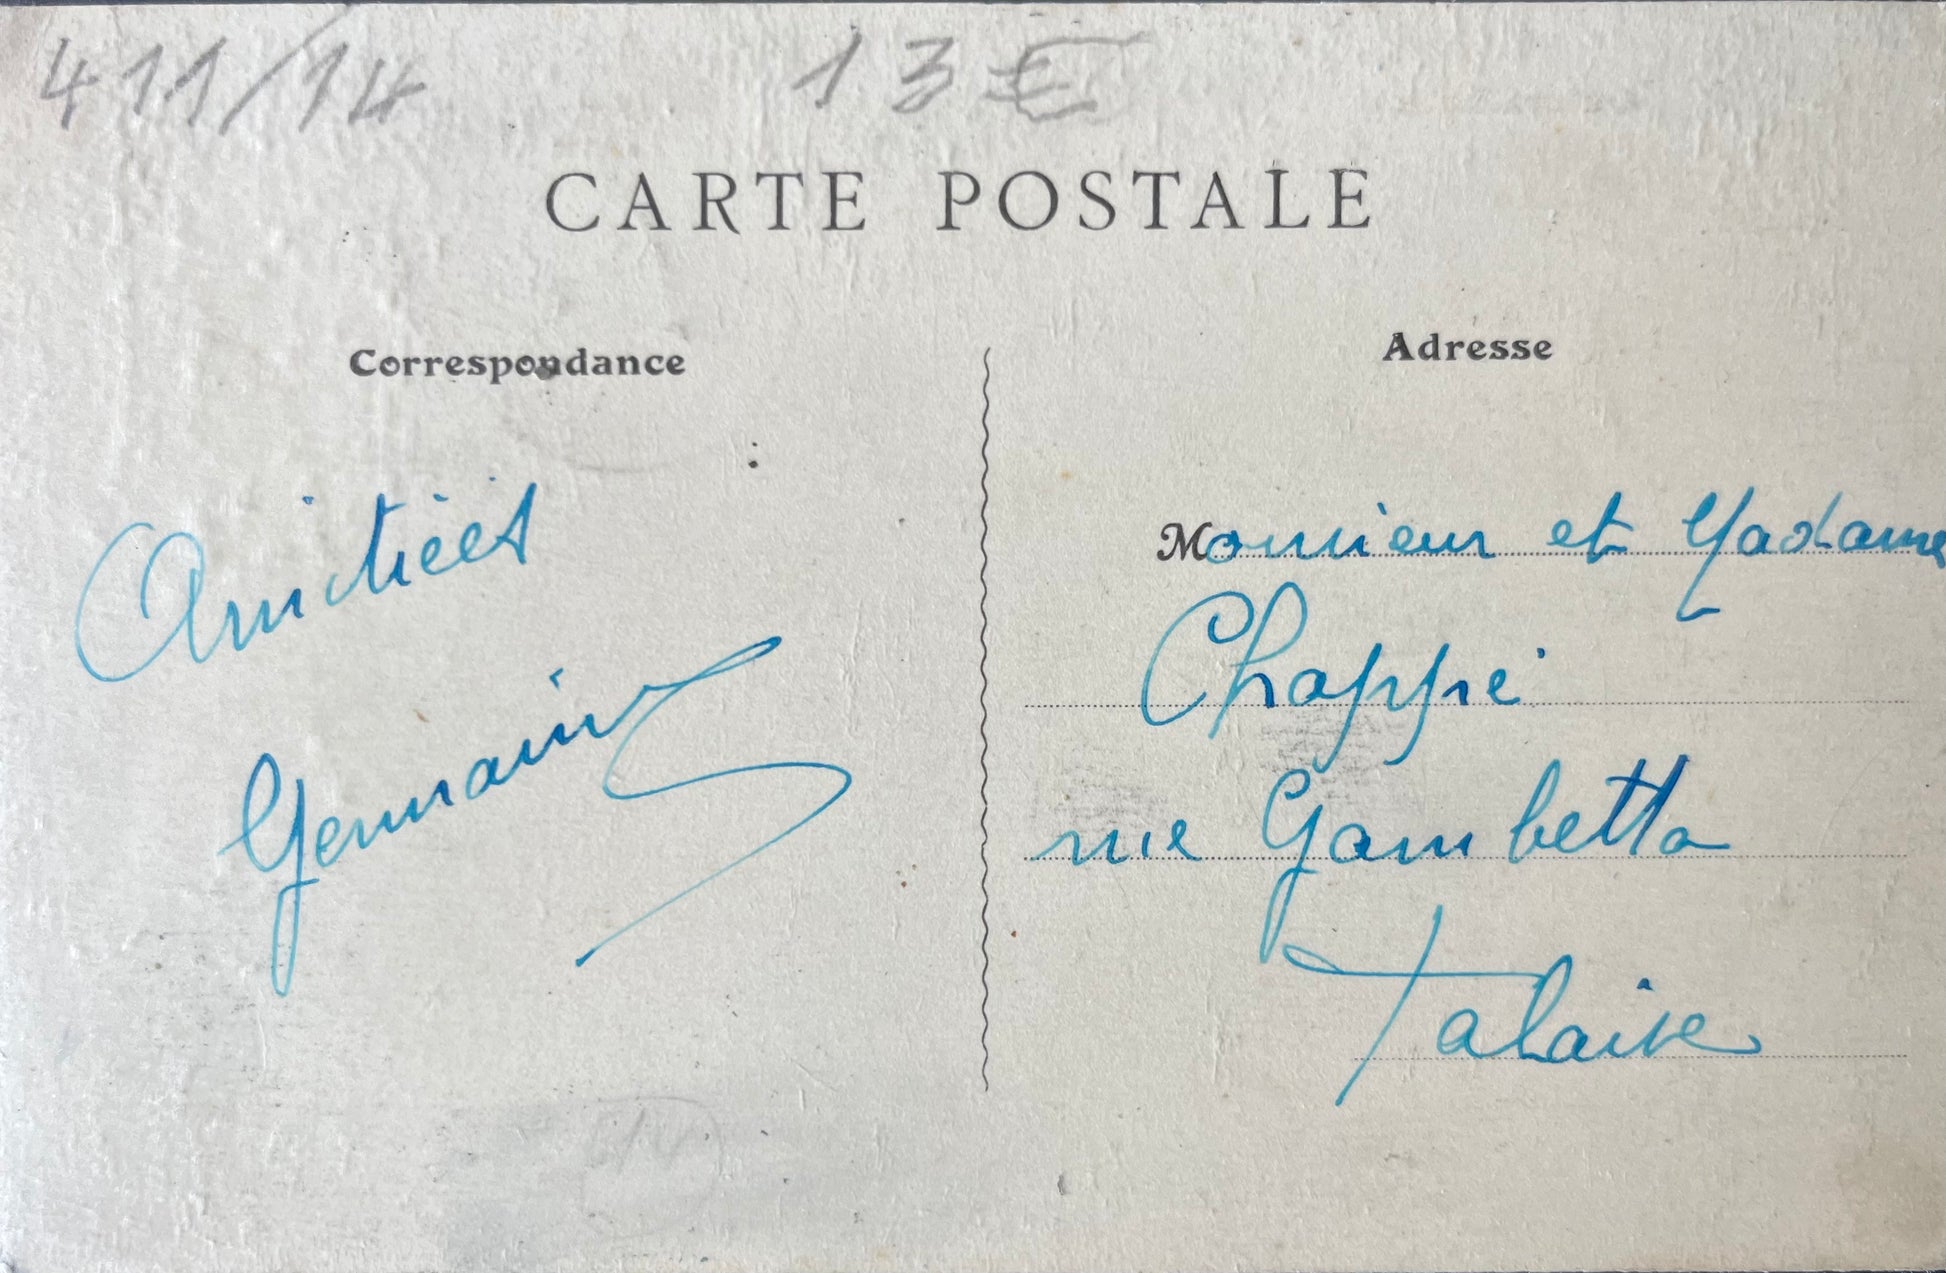 411/14
13 €
CARTE POSTALE
Correspondance
Amitiées
Germain
Adresse
Monsieur et Madame
Chappé
rue Gambetta
Falaise